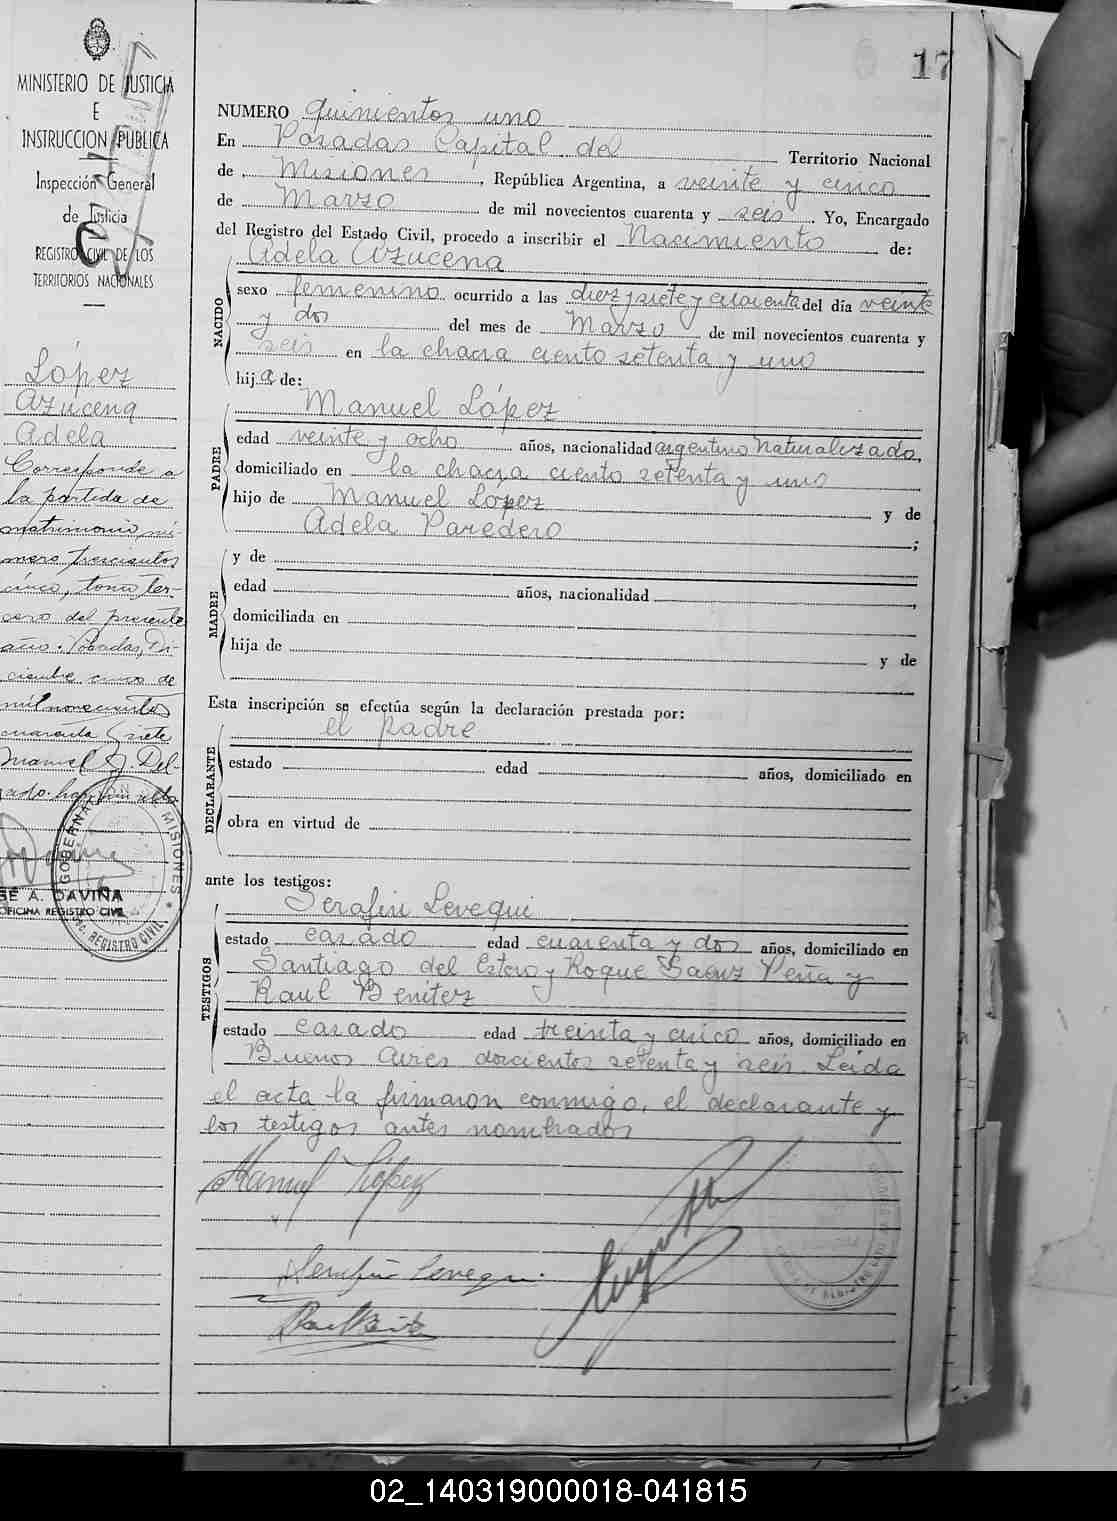 17
MINISTERIO DE JUSTICIA
E
INSTRUCCIÓN PÚBLICA
Inspección General
de Justicia
REGISTRO CIVIL DE LOS
TERRITORIOS NACIONALES
López
Azucena
Adela
Corresponde a
la partida de
matrimonio nú-
mero trescientos
cinco, tomo ter-
cero del presente
año. Posadas, Di-
ciembre cinco de
mil novecientos
cuarenta y siete
Manuel Del-
gado
GOBERNACION MISIONES
OFICINA REGISTRO CIVIL
REGISTRO CIVIL
NUMERO quinientos uno
En Posadas Capital del Territorio Nacional
de Misiones, República Argentina, a veinte y cinco
de Marzo de mil novecientos cuarenta y seis. Yo, Encargado
del Registro del Estado Civil, procedo a inscribir el Nacimiento de:
Adela Azucena
NACIDO
sexo femenino ocurrido a las diez y siete y cincuenta del día veinte
y dos del mes de Marzo de mil novecientos cuarenta y
seis en la chacra ciento setenta y uno
hija de:
Manuel López
PADRE
edad veinte y ocho años, nacionalidad argentino naturalizado,
domiciliado en la chacra ciento setenta y uno
hijo de Manuel López y de
Adela Paredero;
MADRE
y de
edad años, nacionalidad
domiciliada en
hija de y de
Esta inscripción se efectúa según la declaración prestada por:
el padre
DECLARANTE
estado edad años, domiciliado en
obra en virtud de
ante los testigos:
Serafin Levequi
TESTIGOS
estado casado edad cuarenta y dos años, domiciliado en
Santiago del Estero y Roque Saenz Peña y
Raul Benitez
estado casado edad treinta y cinco años, domiciliado en
Buenos Aires doscientos setenta y seis. Leida
el acta la firmaron conmigo, el declarante y
los testigos antes nombrados
Manuel López
Serafin Levequi
Raul Benitez
02_140319000018-041815